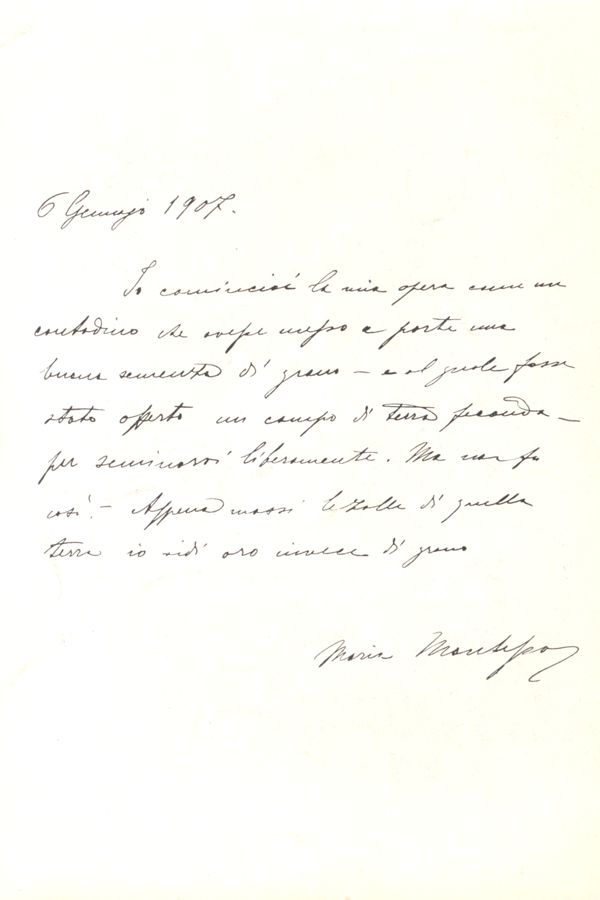 6 Gennajo 1907.
Io cominciai la mia opera come un
contadino che avesse messo a parte una
buona semenza di grano – e al quale fosse
stato offerto un campo di terra feconda –
per seminarvi liberamente. Ma non fu
così. – Appena mossi le zolle di quella
terra io vidi oro invece di grano
Maria Montessori